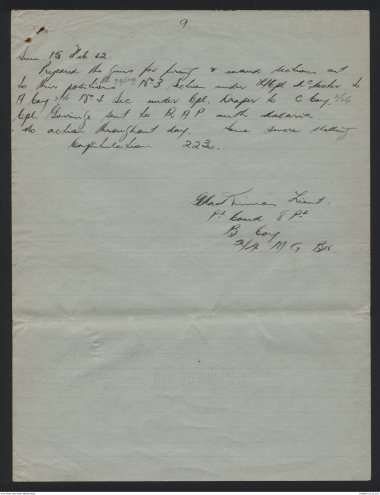 9
15 Feb 42.
Prepared the guns for firing & moved sections out
to their positions No 3 Section under
A Coy No 4 Sec under Cpl. Draper to C Coy
Cpl sent to R A P with malaria.
No action throughout day. Some severe shelling
Capitulation 2230.
Lieut.
Comd 8 Pl
B Coy
2/4 M G Bn.